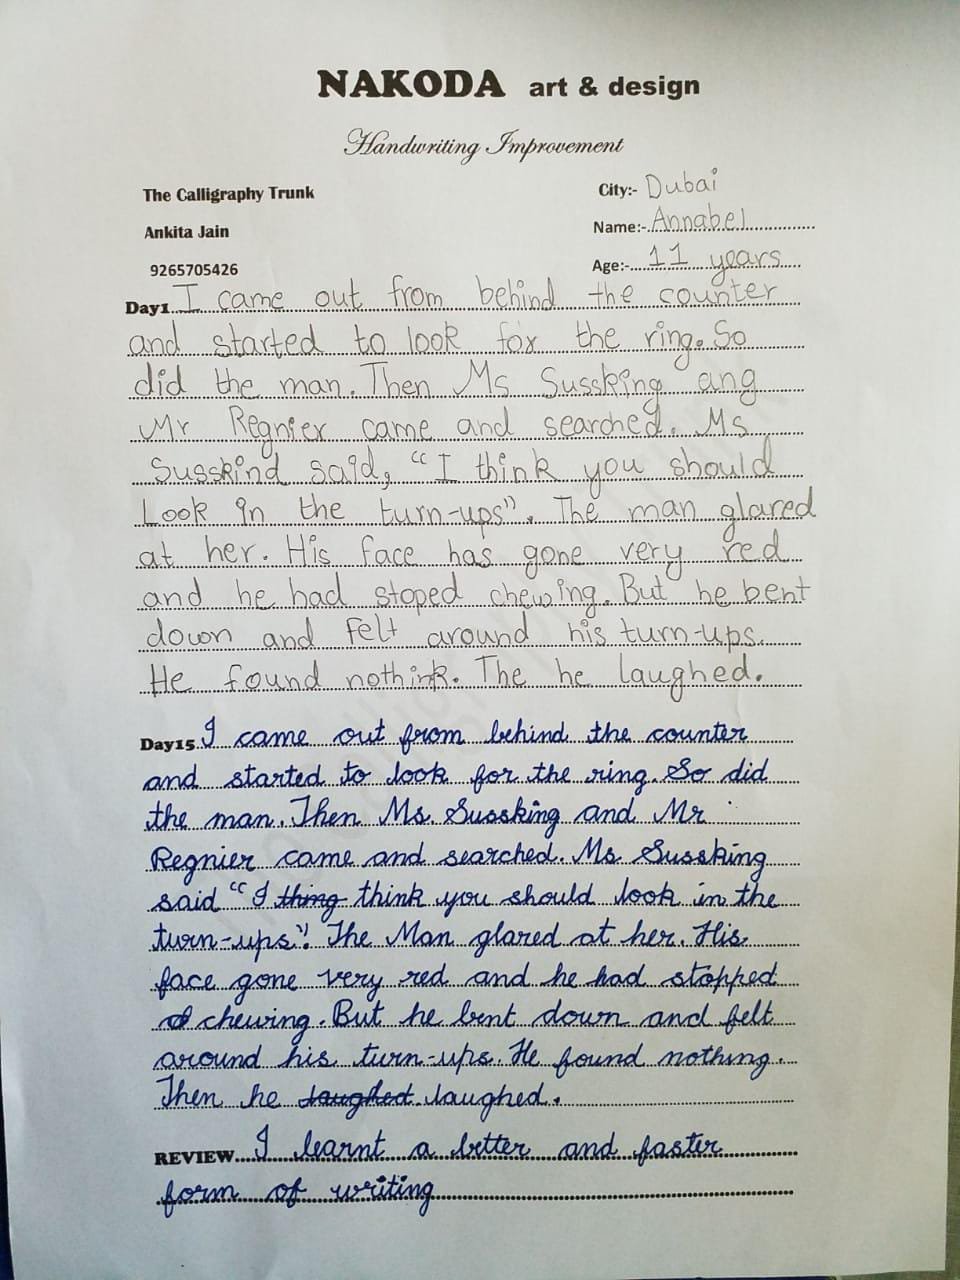 NAKODA art & design
Handwriting Improvement
The Calligraphy Trunk
City:- Dubai
Ankita Jain
Name:- Annabel
9265705426
Age:- 11 years
Day1 I came out from behind the counter
and started to look for the ring. So
did the man. Then Ms Sussking ang
Mr Regnier came and searched. Ms
Susskind said, “I think you should
Look in the turn-ups”. The man glared
at her. His face has gone very red
and he had stoped chewing. But he bent
down and felt around his turn-ups.
He found nothink. The he laughed.
Day15 I came out from behind the counter
and started to look for the ring. So did
the man. Then Ms. Sussking and Mr
Regnier came and searched. Ms. Sussking
said “I thing think you should look in the
turn-ups”. The Man glared at her. His
face gone very red and he had stopped
chewing. But he bent down and felt
around his turn-ups. He found nothing.
Then he laughed laughed.
REVIEW I learnt a better and faster
form of writing